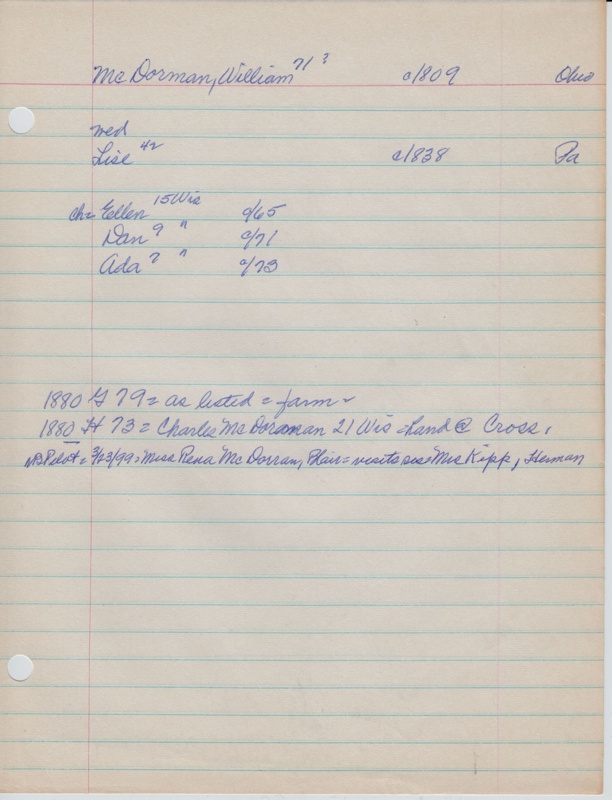 Mc Dorman, William 71 ? c/1809 Ohio
wed
Lise 42 c/1838 Pa
ch= Ellen 15 Wis c/65
Dan 9 " c/71
Ada 7 " c/73
1880 G 79 = as listed = farm -
1880 H 73 = Charles McDoraman 21 Wis = hand @ Cross.
Pilot = 3/23/99 = Miss Rena McDorran, Plain = visits sis = Mrs Kipp, Herman